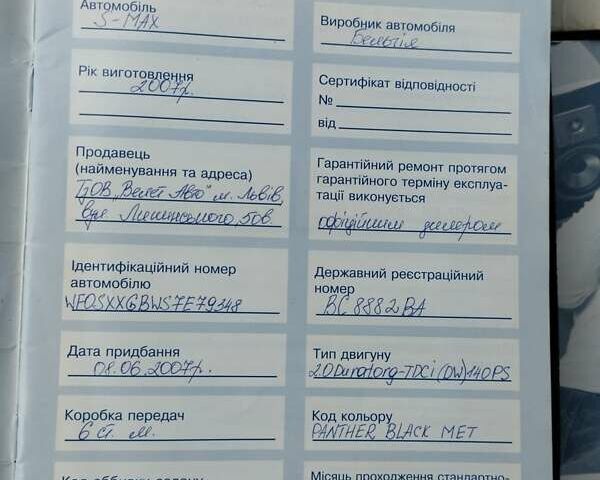 Автомобіль
S-MAX
Виробник автомобіля
Бельгія
Рік виготовлення
2007р.
Сертифікат відповідності
№
від
Продавець
(найменування та адреса)
ТзОВ „Велет Авто" м. Львів,
вул. Липинського, 50в
Гарантійний ремонт протягом
гарантійного терміну експлуа-
тації виконується
офіційним дилером
Ідентифікаційний номер
автомобілю
WFOSXXGBWS7E79348
Державний реєстраційний
номер
BC 8882 BA
Дата придбання
08.06.2007р.
Тип двигуну
2.0 Duratorq-TDCi (DW) 140PS
Коробка передач
6 ст. м.
Код кольору
PANTHER BLACK MET
Місяць проходження стандартно-